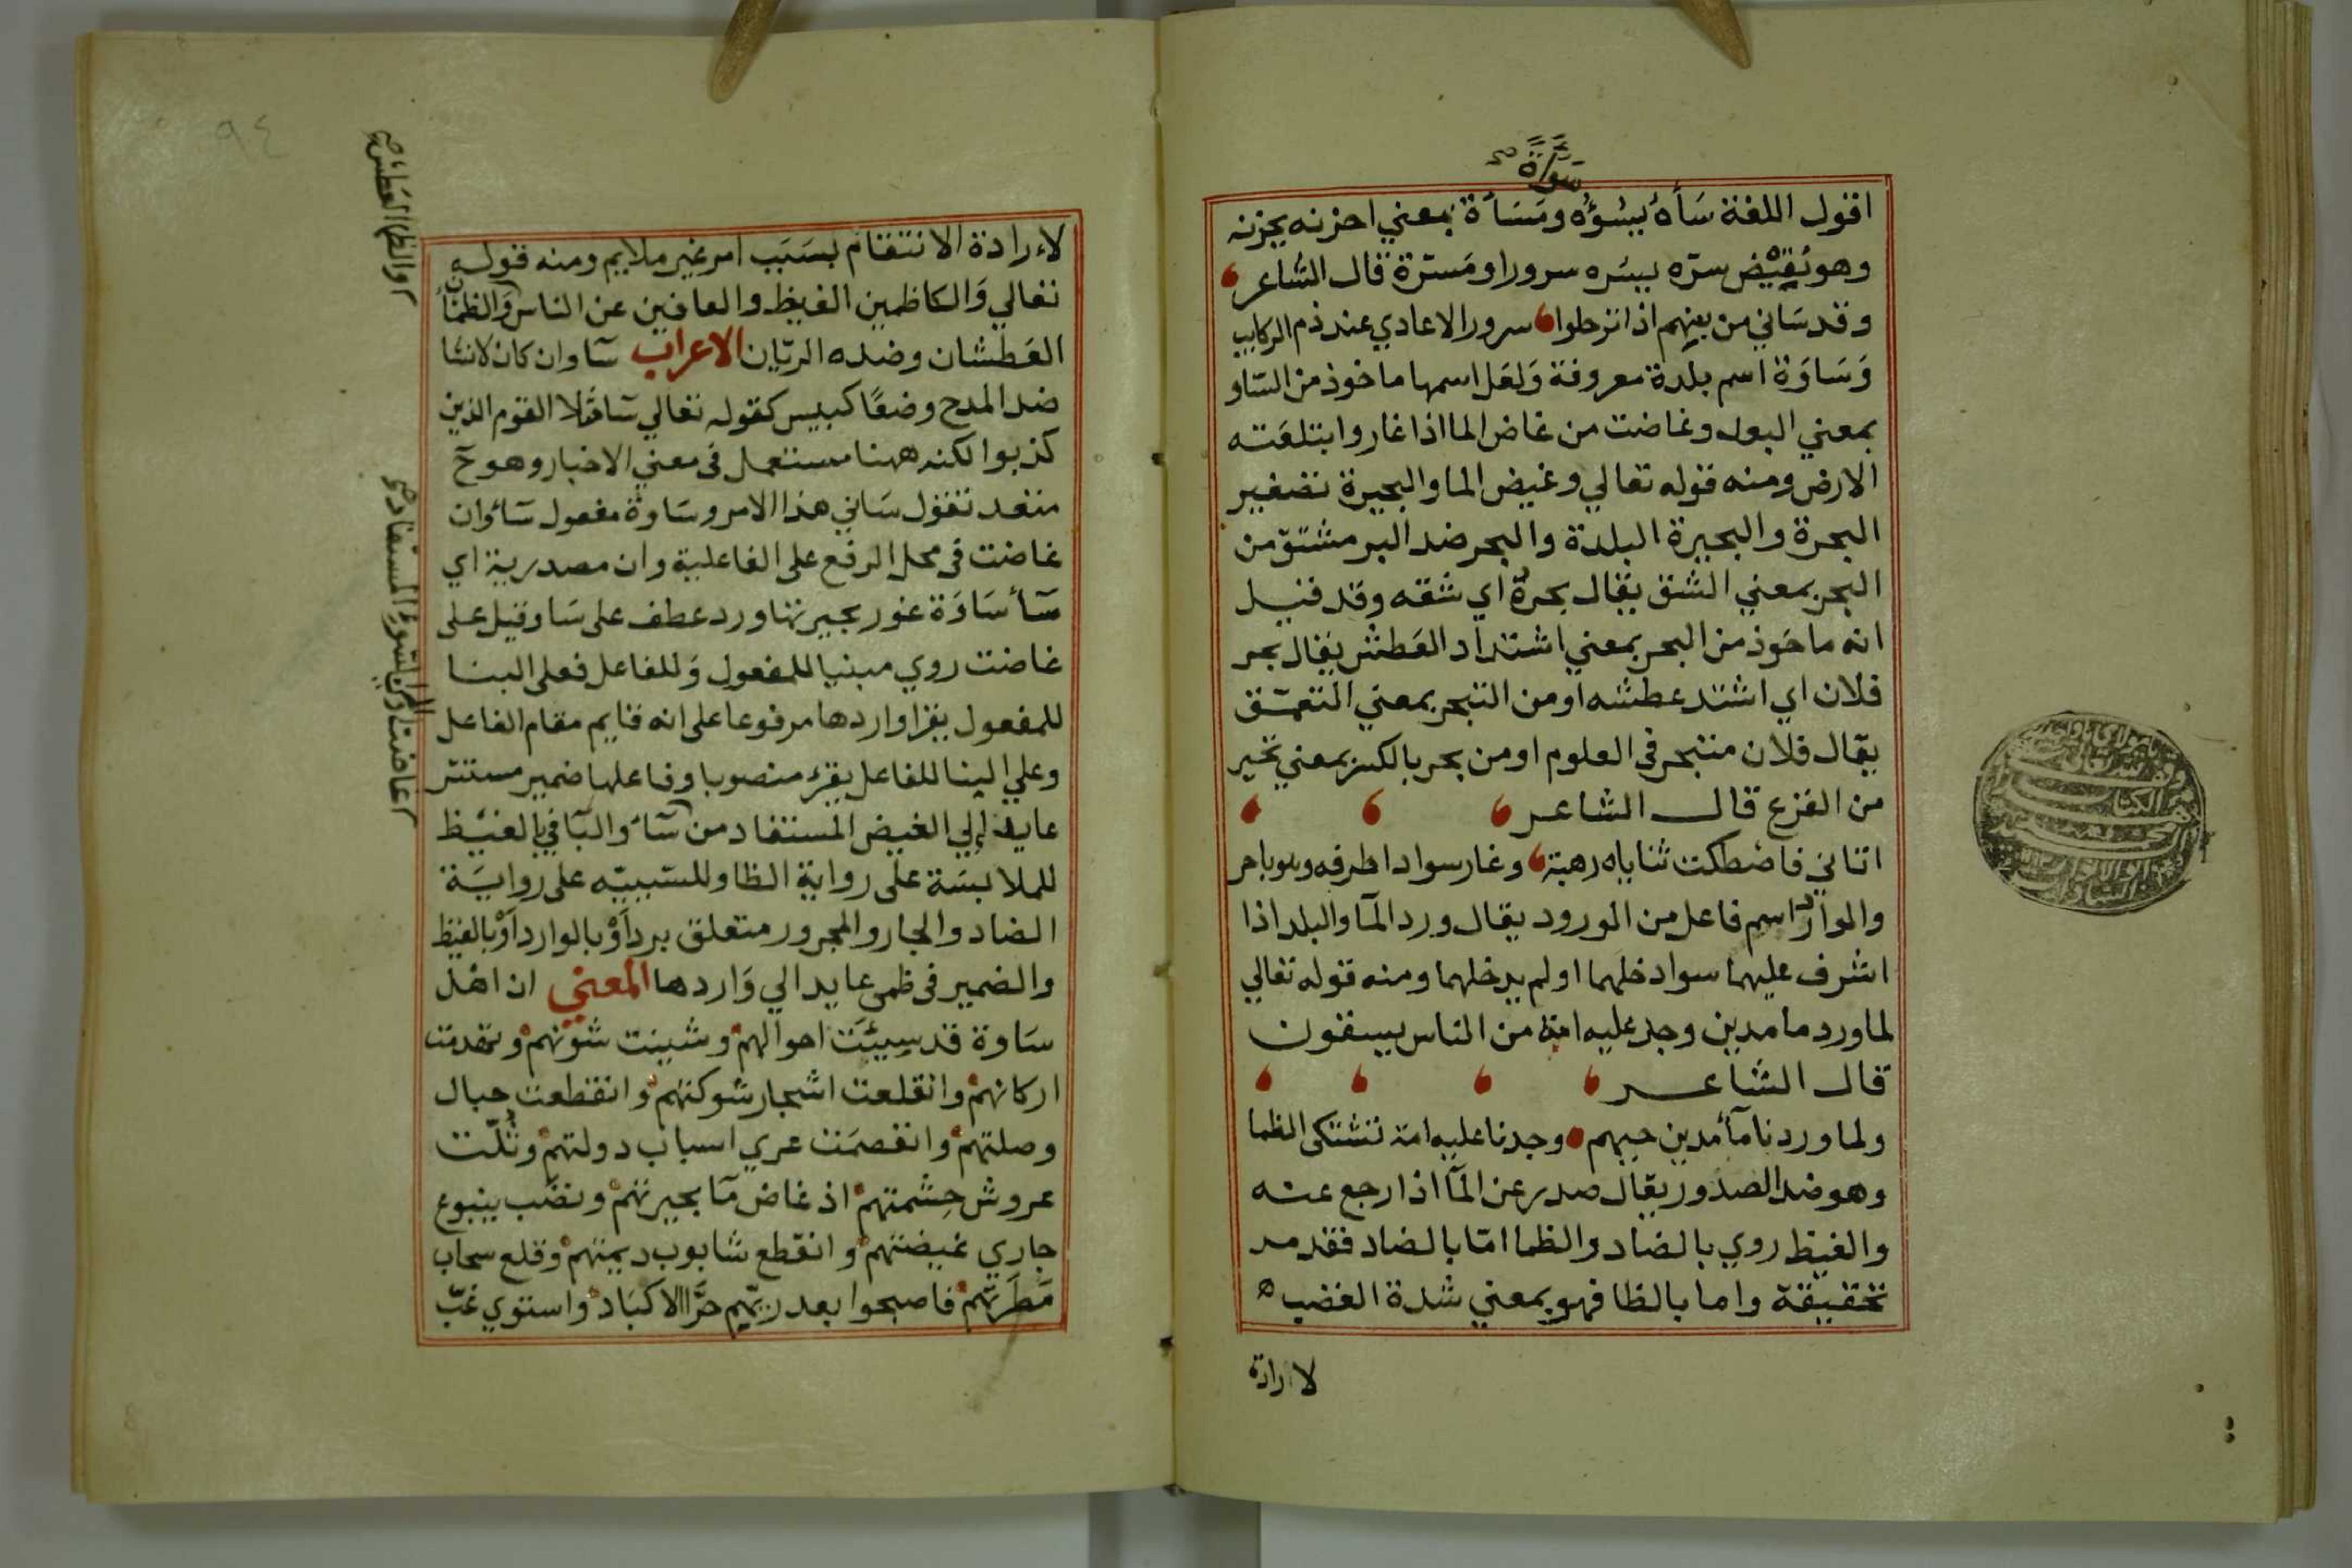 سَوَاءَةً صح
اقول اللغة سَأهُ يسُؤُه ومَسَأة بمعني احزنه يحزنه
وهو نَقِيْض سرّه يسره سرورا ومَسرّة قال الشاعر
وقد سَاني من بينهم اذ اترحلوا سرور الاعادي عند ذم الركايب
وَسَاوَة اسم بلدة معروفة وَلعَل اسمها ماخوذ من السَاو
بمعني البول وغاضت من غاض الما اذا غار وابتلعَته
الارض ومنه قوله تعالي وغيض الما والبحيرة تصغير
البحرة والبحيرة البلدة والبحر ضد البر مشتق من
البحر بمعني الشق يقال بحرهُ اي شقه وقد قيل
انه ماخَوذ من البحر بمعني اشتداد العَطش يقال بحر
فلان اي اشتد عطشه او من التبحر بمعني التعمّق
يقال فلان متبحر في العلوم او من بحر بالكسر بمعني تحير
من الفزع قال الشاعر
اتاني فاصْطكت ثناياه رهبة وغار سوادا طرفه وهو باحر
والموارد اسم فاعل من الورود يقال ورد المآ والبلد اذا
اشرف عليهما سوا دخلهما او لم يدخلهما ومنه قوله تعالي
لما ورد ما مدين وجد عليه امة من الناس يسقون
قال الشاعر
ولما وردنا مآ مدين حبهم وجدنا عليه امة تشتكى الظما
وهو ضد الصدور يقال صدر عن المآ اذا رجع عنه
والغيظ روي بالضاد والظا اما بالضاد فقد مر
تحقيقة واما بالظا فهو بمعني شدة الغضب
لارادة
٩٤
لاءرادة الانتقام بسَبَب امر غير ملايم ومنه قوله
تعالي وَالكاظمين الغيظ والعافين عن الناس وَالظمأن
العَطشان وضده الريّان الاعراب سَآ وان كان لانشا
ضد المدح وضعًا كبيس كقوله تعالي سَآ مثلا القوم الذين
كذبوا لكنه ههنا مستعمل فى معني الاخبار وهو حَ
متعد تقول سَاني هذا الامر وسَاوة مفعول سَآ وان
غاضت فى محل الرفع على الفاعلية وان مصدرية اي
سَآ سَاوَة غور بحيرتها ورد عطف على سَا وقيل على
غاضت روي مبنيا للمفعول وَللفاعل فعلى البنا
للمفعول يقرا واردها مرفوعا على انه قايم مقام الفاعل
وعلي البنا للفاعل يقرء منصوبا وفاعلها ضمير مستتر
عايد إلي الغيض المستفاد من سَآ والبَا في بالغيْظ
للملابسَة على رواية الظا وللسَببيّه على روايَة
الضاد والجار والمجرور متعلق برد اَوْ بالوارد اَوْ بالغيظ
والضمير فى ظمى عايد الي وَاردها المعَنيْ ان اهْل
سَاوة قد سِيْئَت احوالهمْ وشينت شؤنهمْ وتهَدمت
اركانهمْ وانقلعت اشجار شوكتهمْ وانقطعت حبال
وصلتهمْ وانفصمَت عري اسباب دولتهمْ وثُلّت
عروش حِشمتهمْ اذ غاض مَآ بحيرتهمْ ونضَب ينبوع
جاري غيضتهمْ وانقطع شابوب ديمتهمْ وقلع سحاب
مَطَرتهمْ فاصبحوا بعد ريهم حَرَّا الاكبَاد واستوي غبّ
والظمأ العَطش صح